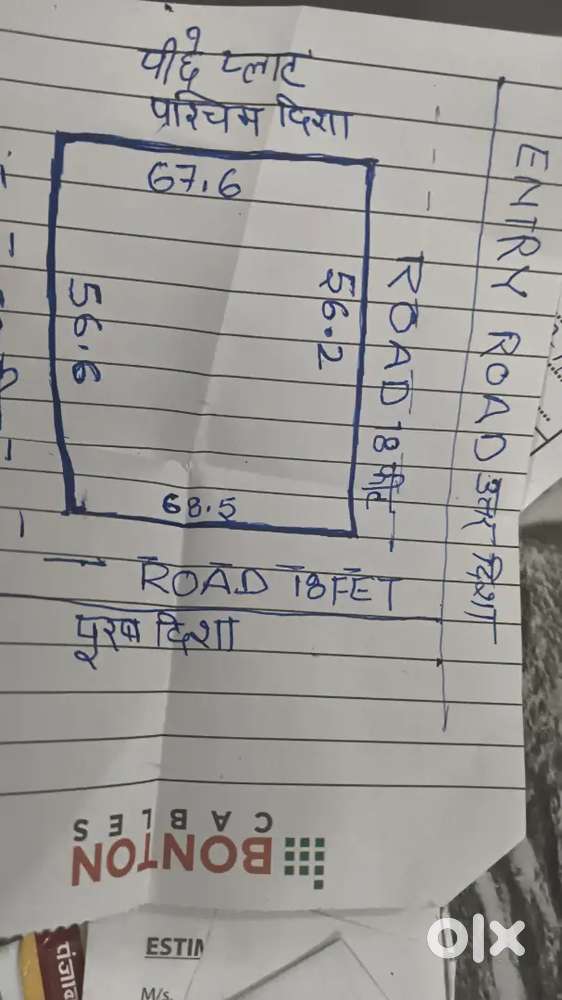 पीछे प्लाट
पश्चिम दिशा
67.6
56.6
56.2
68.5
ROAD 18 फीट
ENTRY ROAD उत्तर दिशा
ROAD 18 FET
पूरब दिशा
BONTON
CABLES
ESTIM
M/s.
पंजाब
olx